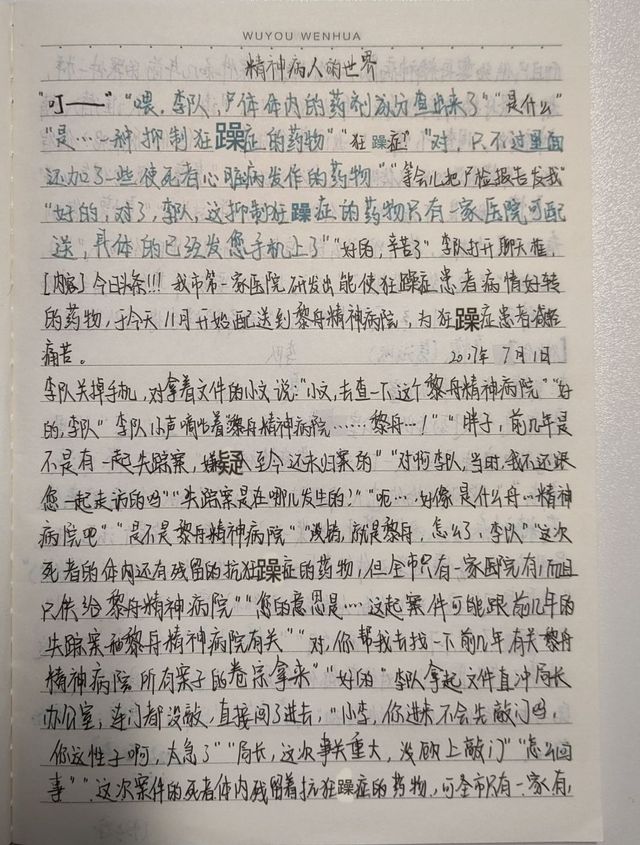 WUYOU WENHUA
精神病人的世界
"叮——" "喂，李队，尸体体内的药剂成分查出来了" "是什么"
"是…一种抑制狂躁症的药物" "狂躁症" "对，只不过里面
还加了一些使死者心脏病发作的药物" "等会儿把尸检报告发我"
"好的，对了，李队，这抑制狂躁症的药物只有一家医院可配
送，具体的已经发您手机上了" "好的，辛苦了" 李队打开聊天框，
[内容] 今日头条!!! 我市第一家医院研发出能使狂躁症患者病情好转
的药物，于今天11月开始配送到黎舟精神病院，为狂躁症患者减轻
痛苦。 2017年7月1日
李队关掉手机，对拿着文件的小文说："小文，去查一下这个黎舟精神病院" "好
的，李队" 李队小声嘀咕着"黎舟精神病院……黎舟…！" "胖子，前几年是
不是有一起失踪案，嫌疑人至今还未归案的" "对啊李队，当时，我不还跟
您一起走访的吗" "失踪案是在哪儿发生的？" "呃…好像是什么舟…精神
病院吧" "是不是黎舟精神病院" "没错，就是黎舟，怎么了，李队" "这次
死者的体内还有残留的抗狂躁症的药物，但全市只有一家医院有，而且
只供给黎舟精神病院" "您的意思是…这起案件可能跟前几年的
失踪案和黎舟精神病院有关" "对，你帮我去找一下前几年有关黎舟
精神病院所有案子的卷宗拿来" "好的" 李队拿起文件直冲局长
办公室，连门都没敲，直接闯了进去，"小李，你进来不会先敲门吗，
你这性子啊，太急了" "局长，这次事关重大，没顾上敲门" "怎么回
事" "这次案件的死者体内残留着抗狂躁症的药物，可全市只有一家有，